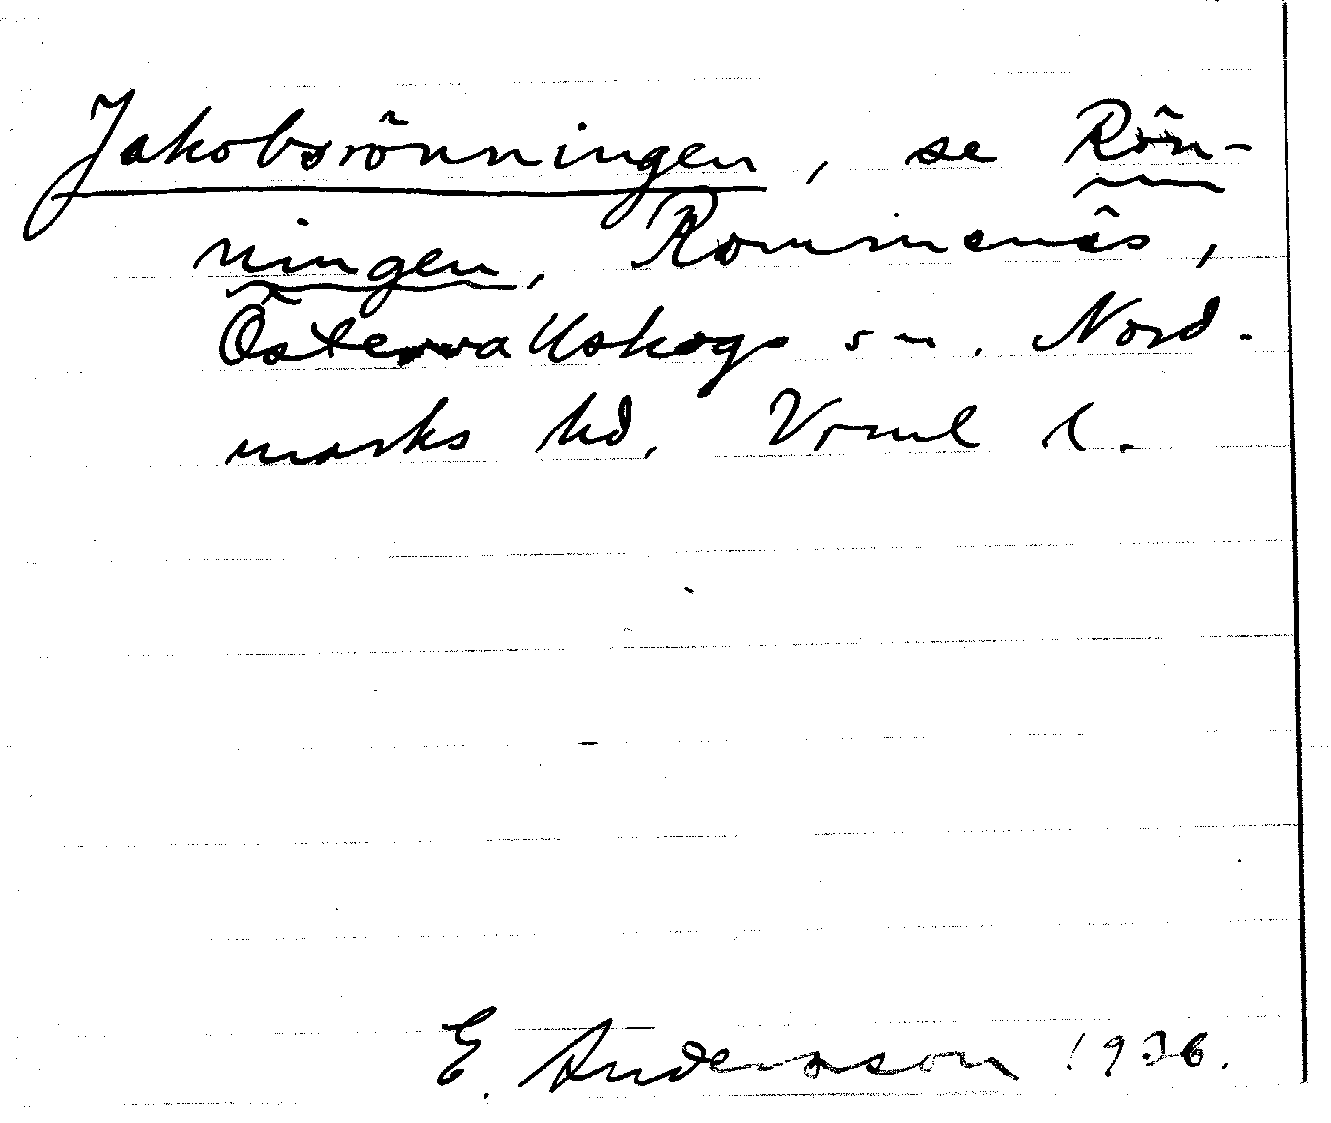 Jakobsrönningen, se Rön-
ningen, Rommenäs,
Östervallskogs sn. Nord-
marks hd. Vrml l.
E. Andersson 1936.